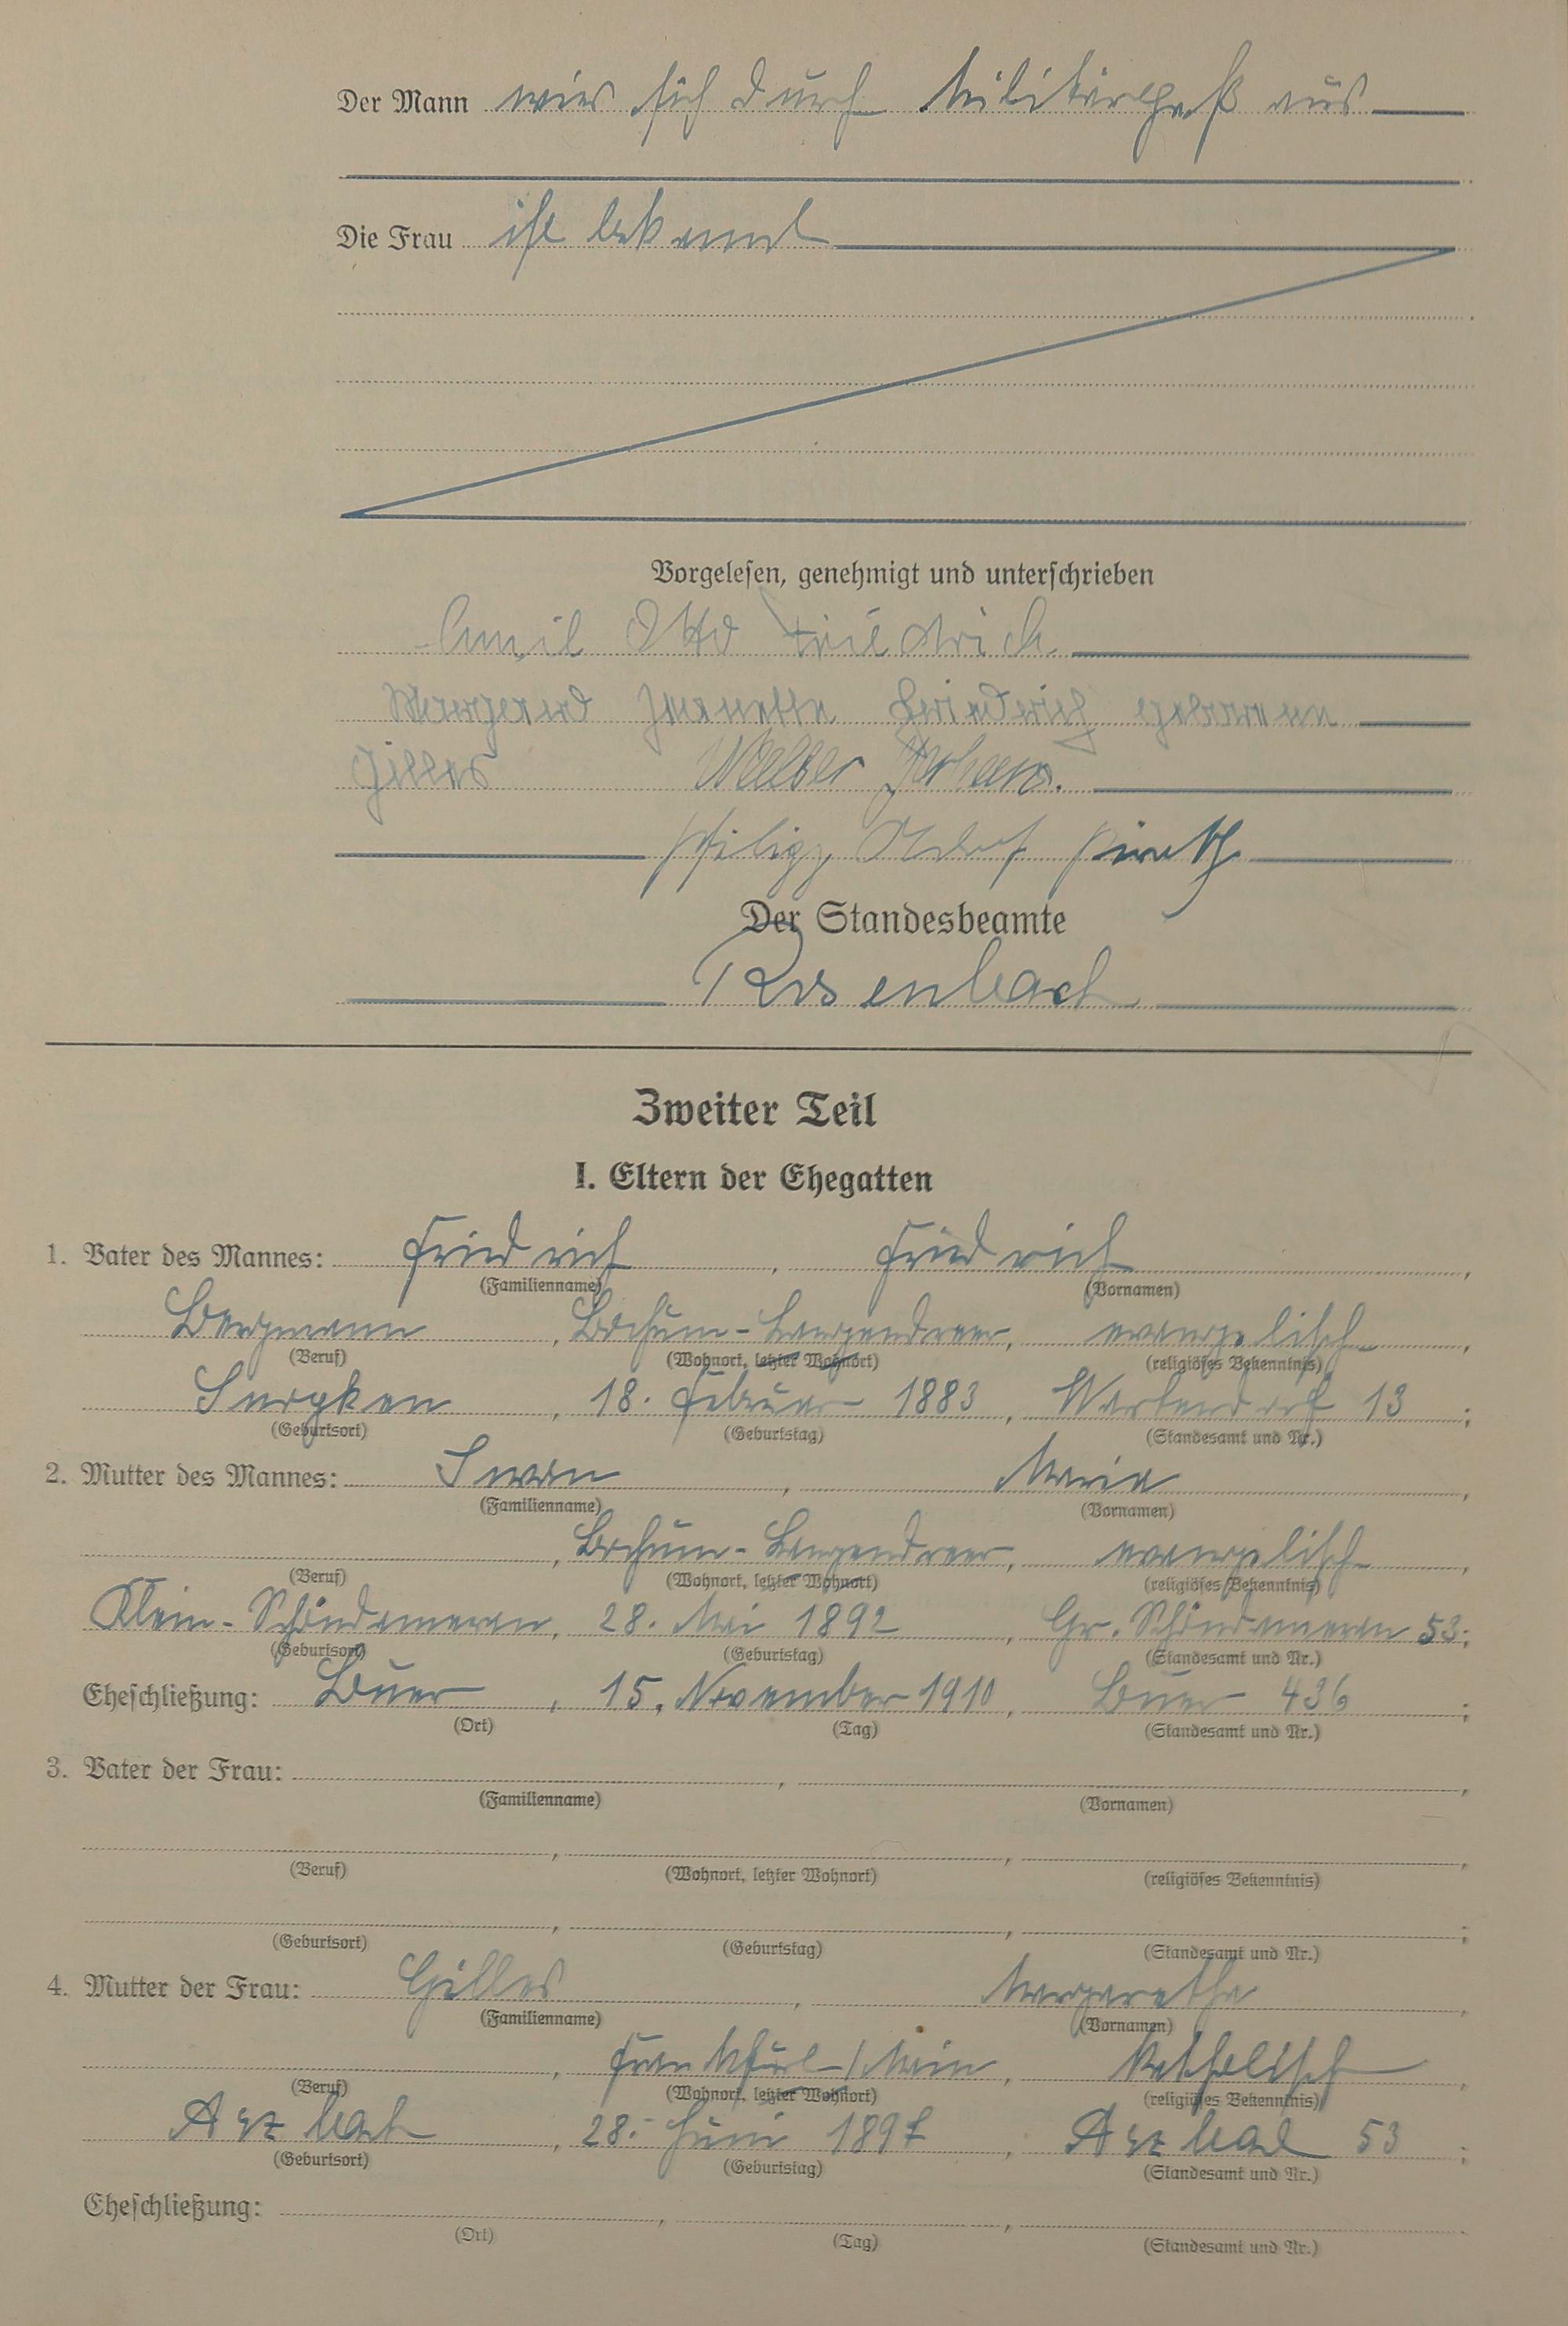 Der Mann wies sich durch Militärpaß aus
Die Frau ist bekannt
Vorgelesen, genehmigt und unterschrieben
Emil Otto Friedrich
Margareta Friedrich geborene
Gilles Walter
Philipp Adolf
Der Standesbeamte
Rosenbach
Zweiter Teil
I. Eltern der Ehegatten
1. Vater des Mannes: Friedrich, Friedrich,
(Familienname) (Vornamen)
Bergmann, Bochum-Langendreer, evangelisch,
(Beruf) (Wohnort, letzter Wohnort) (religiöses Bekenntnis)
18. Februar 1883, 13;
(Geburtsort) (Geburtstag) (Standesamt und Nr.)
2. Mutter des Mannes: Maria,
(Familienname) (Vornamen)
, Bochum-Langendreer, evangelisch,
(Beruf) (Wohnort, letzter Wohnort) (religiöses Bekenntnis)
Klein-Schöndameran, 28. Mai 1892, Gr. Schöndameran 53;
(Geburtsort) (Geburtstag) (Standesamt und Nr.)
Eheschließung: Buer, 15. November 1910, Buer 436;
(Ort) (Tag) (Standesamt und Nr.)
3. Vater der Frau: , ,
(Familienname) (Vornamen)
, , ,
(Beruf) (Wohnort, letzter Wohnort) (religiöses Bekenntnis)
, , ;
(Geburtsort) (Geburtstag) (Standesamt und Nr.)
4. Mutter der Frau: Gilles, Margaretha,
(Familienname) (Vornamen)
, Frankfurt/Main, katholisch,
(Beruf) (Wohnort, letzter Wohnort) (religiöses Bekenntnis)
Arzbach, 28. Juni 1897, Arzbach 53;
(Geburtsort) (Geburtstag) (Standesamt und Nr.)
Eheschließung: , ,
(Ort) (Tag) (Standesamt und Nr.)